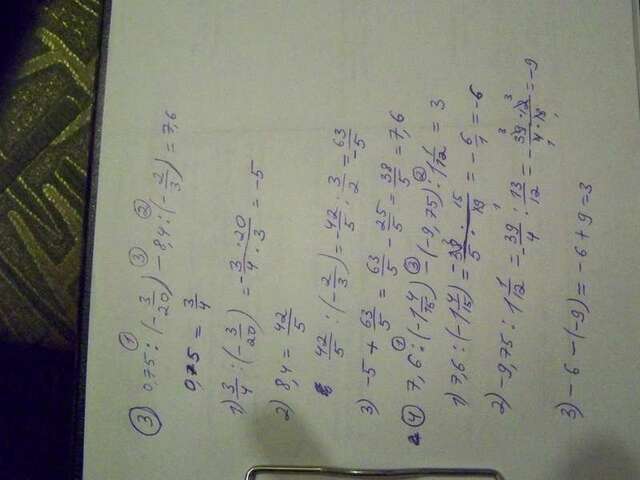 ③ 0,75 : (-3/20) - 8,4 : (-2/3) = 7,6
0,75 = 3/4
1) 3/4 : (-3/20) = -3·20/4·3 = -5
2) 8,4 = 42/5
42/5 : (-2/3) = -42/5 : 3/2 = 63/-5
3) -5 + 63/5 = 63/5 - 25/5 = 38/5 = 7,6
④ 7,6 : (-1 4/15) - (-9,75) : 1 1/12 = 3
1) 7,6 : (-1 4/15) = 38/5 · 15/19 = -6/1 = -6
2) -9,75 : 1 1/12 = -39/4 : 13/12 = -39·12/4·13 = -9
3) -6 - (-9) = -6 + 9 = 3